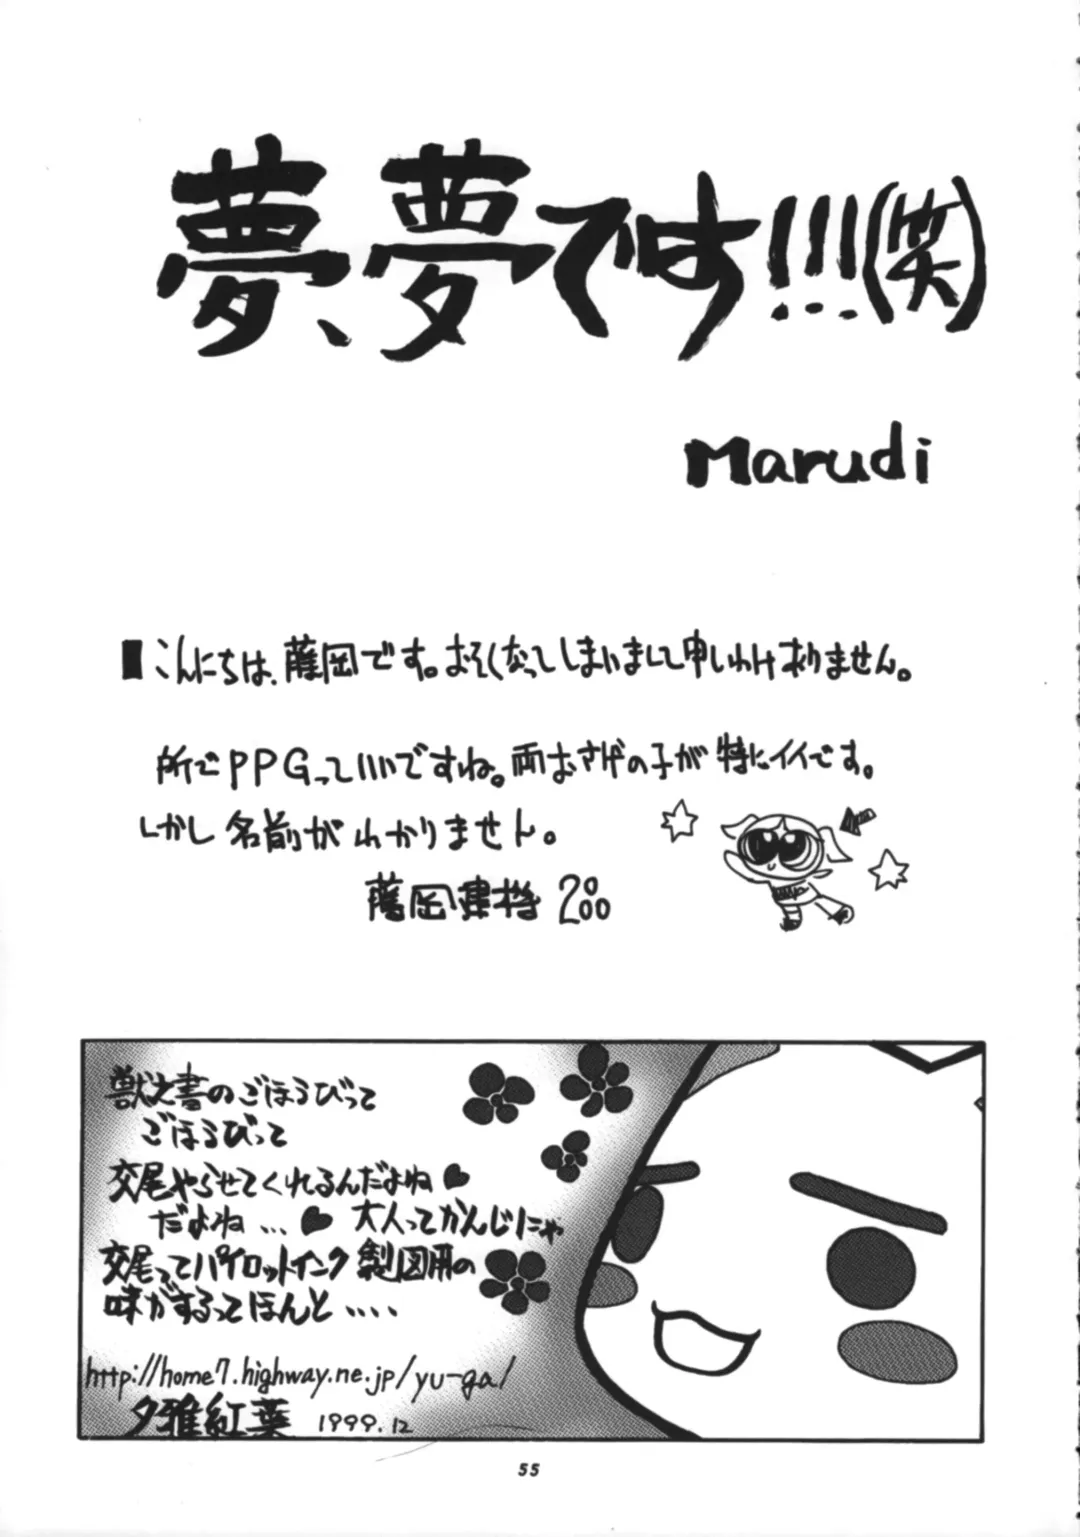 夢、夢です!!!(笑)
Marudi
■こんにちは、薩岡です。おそくなってしまいまして申しわけありません。
所でPPGっていいですね。両おさげの子が特にイイです。
しかし名前がわかりません。
薩岡建機 2000
獣之書のごほうびって
ごほうびって
交尾やらせてくれるんだよね♥
だよね…♥ 大人ってかんじにゃ
交尾ってパイロットインク製図用の
味がするってほんと・・・・
http://home7.highway.ne.jp/yu-ga/
夕雅紅葉 1999.12
55